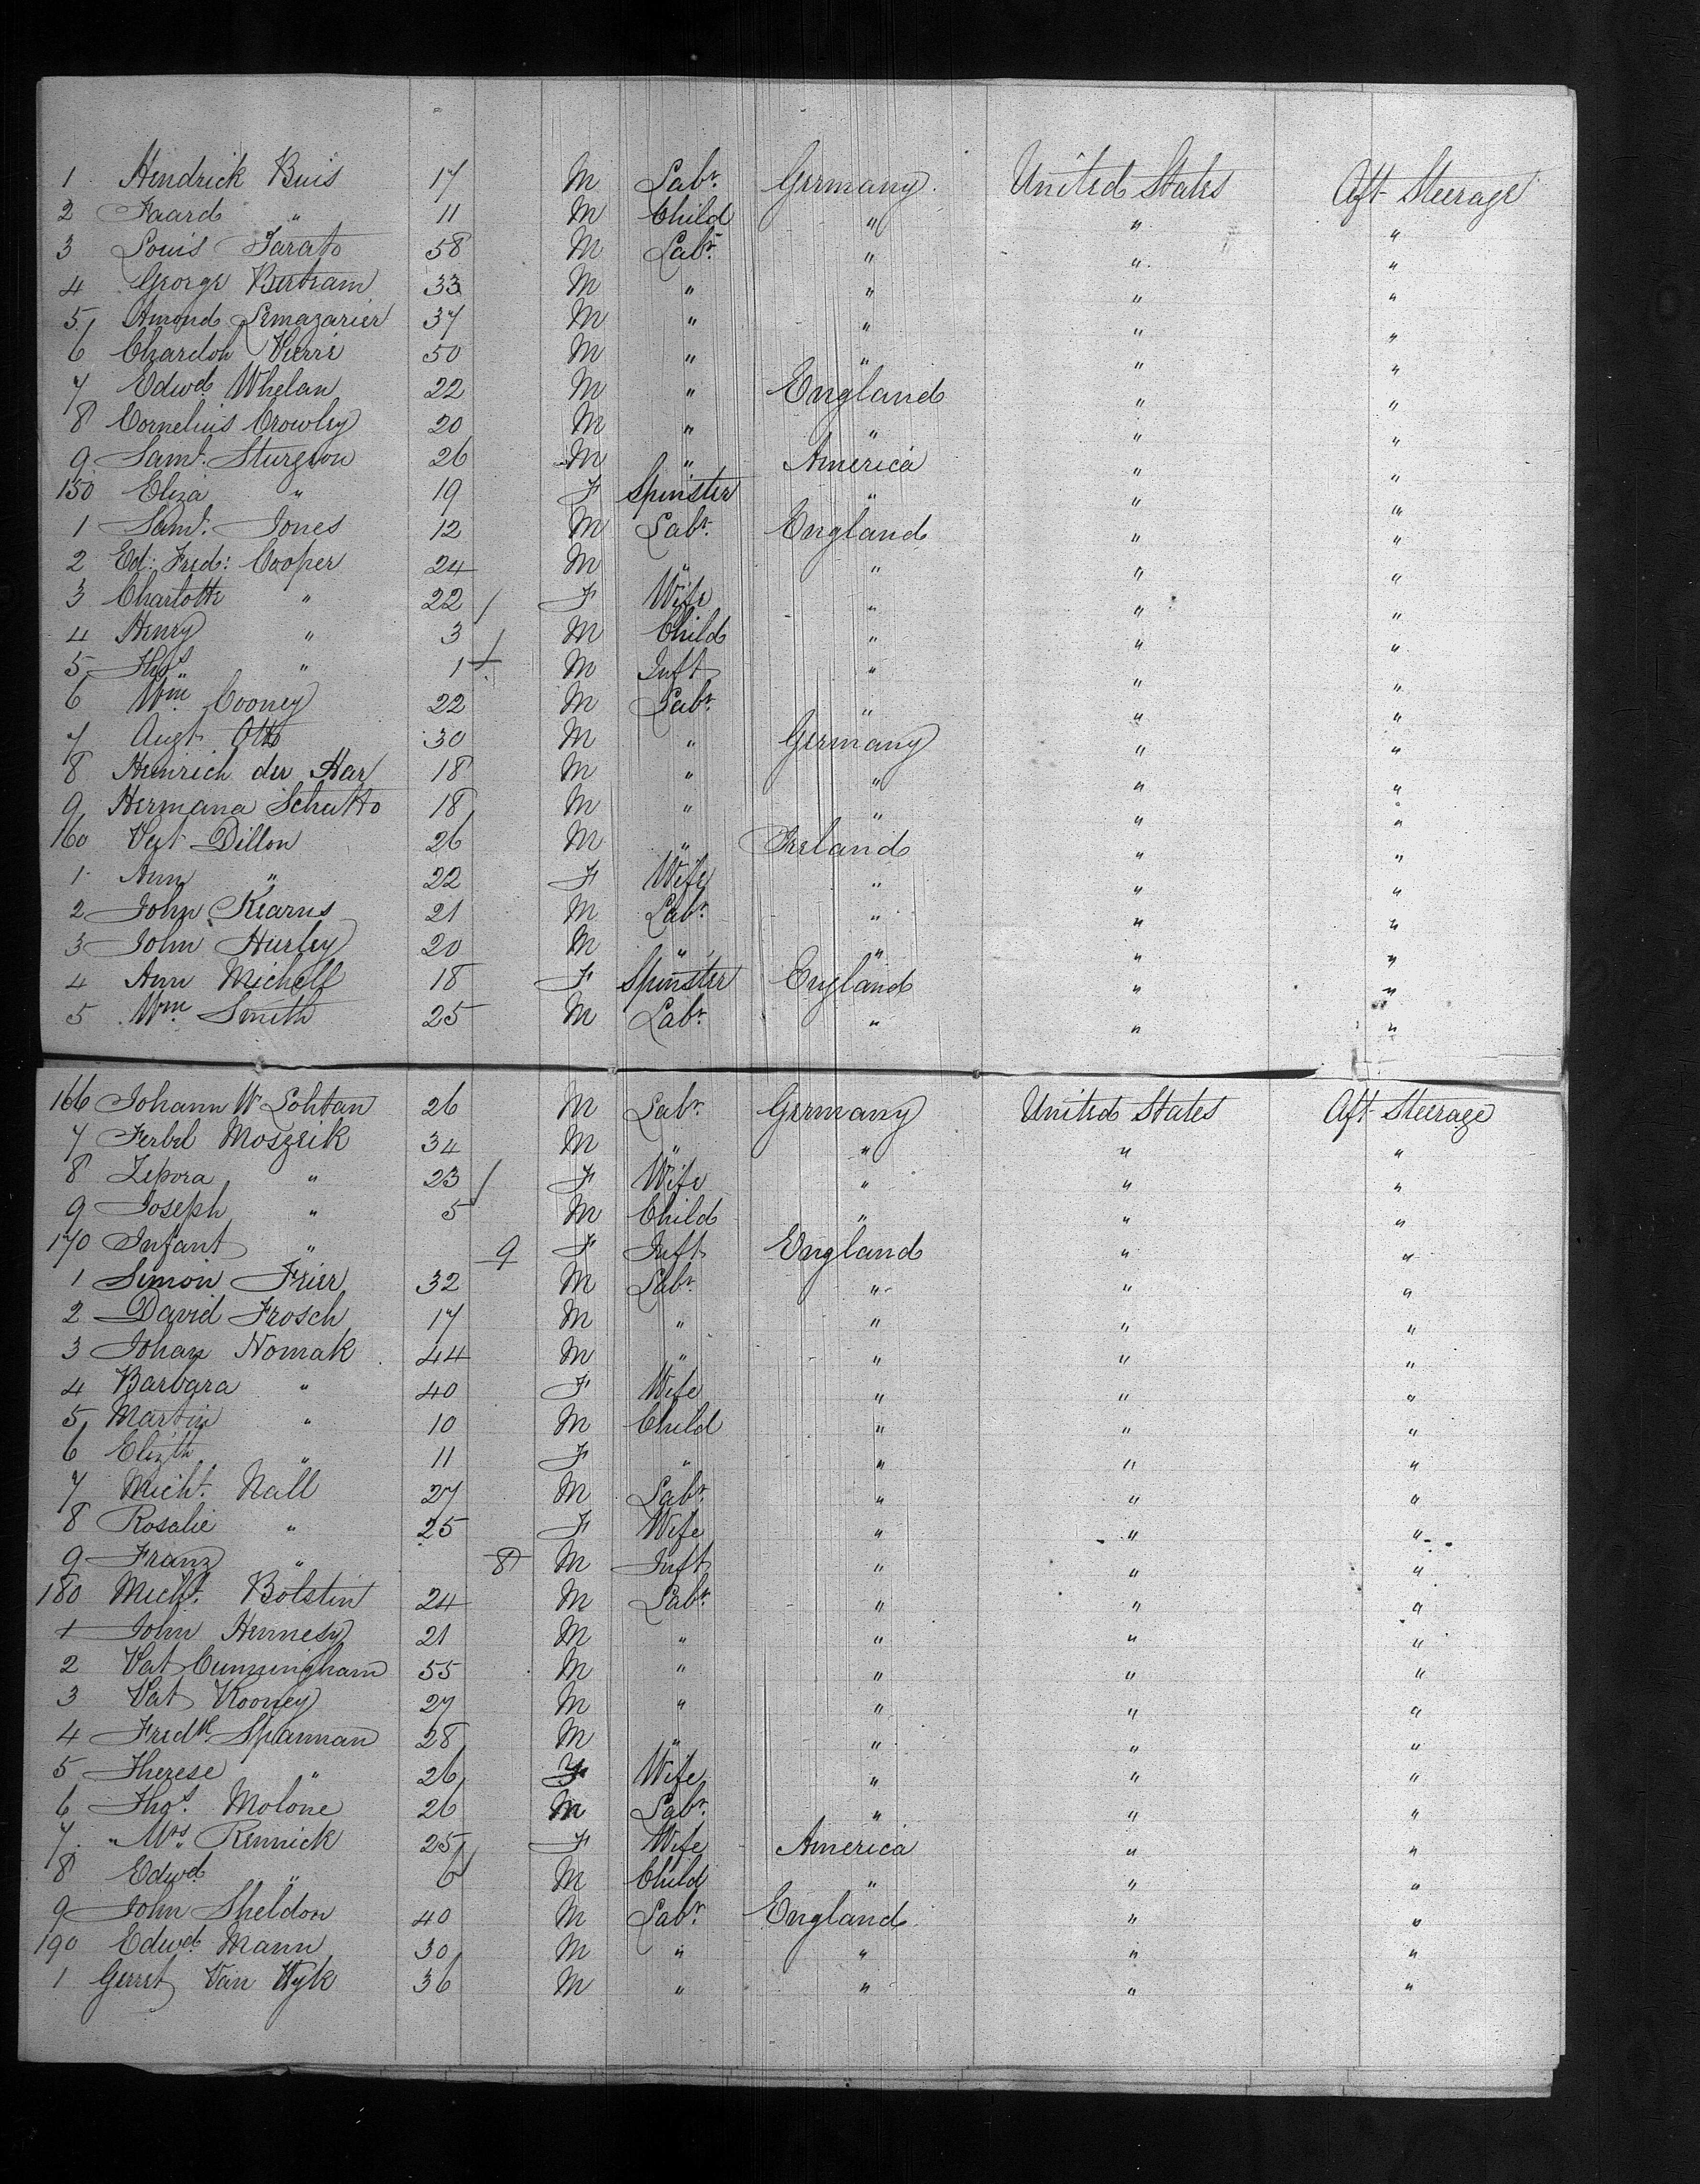 1 Hendrick Buis 17 M Labr. Germany United States Aft Steerage
2 Faard " 11 M Child " " "
3 Louis Tarato 58 M Labr. " " "
4 George Bertram 33 M " " " "
5 Amond Lemazarier 37 M " " " "
6 Chardon Pierre 50 M " " " "
7 Edwd. Whelan 22 M " England " "
8 Cornelius Crowley 20 M " " " "
9 Saml. Sturgeon 26 M " America " "
150 Eliza " 19 F Spinster " " "
1 Saml. Jones 12 M Labr. England " "
2 Ed: Fred: Cooper 24 M " " " "
3 Charlotte " 22 F Wife " " "
4 Henry " 3 M Child " " "
5 Thos " 1 M Inft " " "
6 Wm Cooney 22 M Labr. " " "
7 Augt. Otto 30 M " Germany " "
8 Heinrich der Haar 18 M " " " "
9 Hermana Schutto 18 M " " " "
160 Pat Dillon 26 M " Ireland " "
1 Ann " 22 F Wife " " "
2 John Kearns 21 M Labr. " " "
3 John Hurley 20 M " " " "
4 Ann Michell 18 F Spinster England " "
5 Wm Smith 25 M Labr. " " "
166 Johann W Lohtan 26 M Labr. Germany United States Aft Steerage
7 Ferbel Moszeik 34 M " " " "
8 Zepora " 23 F Wife " " "
9 Joseph " 5 M Child " " "
170 Infant " 9 F Inft England " "
1 Simon Frier 32 M Labr. " " "
2 David Frosch 17 M " " " "
3 Johan Nomak 44 M " " " "
4 Barbara " 40 F Wife " " "
5 Martin " 10 M Child " " "
6 Elizth " 11 F " " " "
7 Michl. Nall 27 M Labr. " " "
8 Rosalie " 25 F Wife " " "
9 Franz " 8 M Inft " " "
180 Michl. Bolstin 24 M Labr. " " "
1 John Hennesy 21 M " " " "
2 Pat Cunningham 55 M " " " "
3 Pat Rooney 27 M " " " "
4 Fredk Spannan 28 M " " " "
5 Therese " 26 F Wife " " "
6 Thos. Molone 26 M Labr. " " "
7 Mrs Rennick 25 F Wife America " "
8 Edwd " 6 M Child " " "
9 John Sheldon 40 M Labr. England " "
190 Edwd. Mann 30 M " " " "
1 Gerret Van Wyk 36 M " " " "